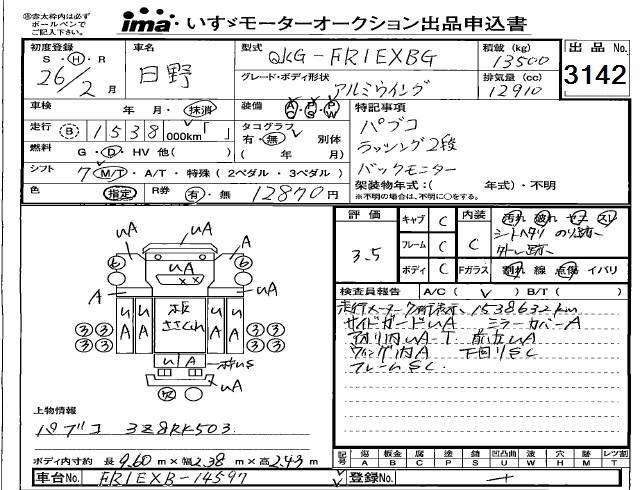 ※赤太枠内は必ずボールペンでご記入下さい。
ima いすゞモーターオークション出品申込書
初度登録 S・H・R 26/2月
車名 日野
型式 QKG-FR1EXBG
積載(kg) 13500
出品No. 3142
グレード・ボディ形状 アルミウイング
排気量(cc) 12910
車検 年 月・抹消
装備 AC PS PW
特記事項
パブコ
ラッシング2段
バックモニター
走行 B 1538 000km「 」
タコグラフ 有・無 別体 ( 年 月)
燃料 G・D・HV 他( )
シフト 7 M/T・A/T・特殊(2ペダル・3ペダル)
架装物年式:( 年式)・不明
※不明の場合は、不明に○をする。
色 指定 R券 有・無 12870円
評価 3.5
キャブ C
フレーム C
ボディ C
内装 C
汚れ 破れ コゲ スレ
シートヘタリ のり跡
外し跡
Fガラス 割れ 線 点傷 イバリ
検査員報告 A/C( ✓ ) B/T( )
走行メーター 表示 1538632km
サイドガードuA ミラーカバーA
アオリ内uA-T 前立uA
ウィング内A 下回りSC
フレームSC
uA uA A
6 6
uA XX
A uA
uA uA 板ささくれ uA uA
3 3 3 3
3 3 3 3
u A
uA
上物情報
パブコ 3Z8RK503
ボディ内寸約 長9.60m×幅2.38m×高2.43m
記号 傷A 板金B 腐C 塗P 錆S 凹凸曲U 波W 穴H 跡M レツ割T
車台No. FR1EXB-14597
登録No.